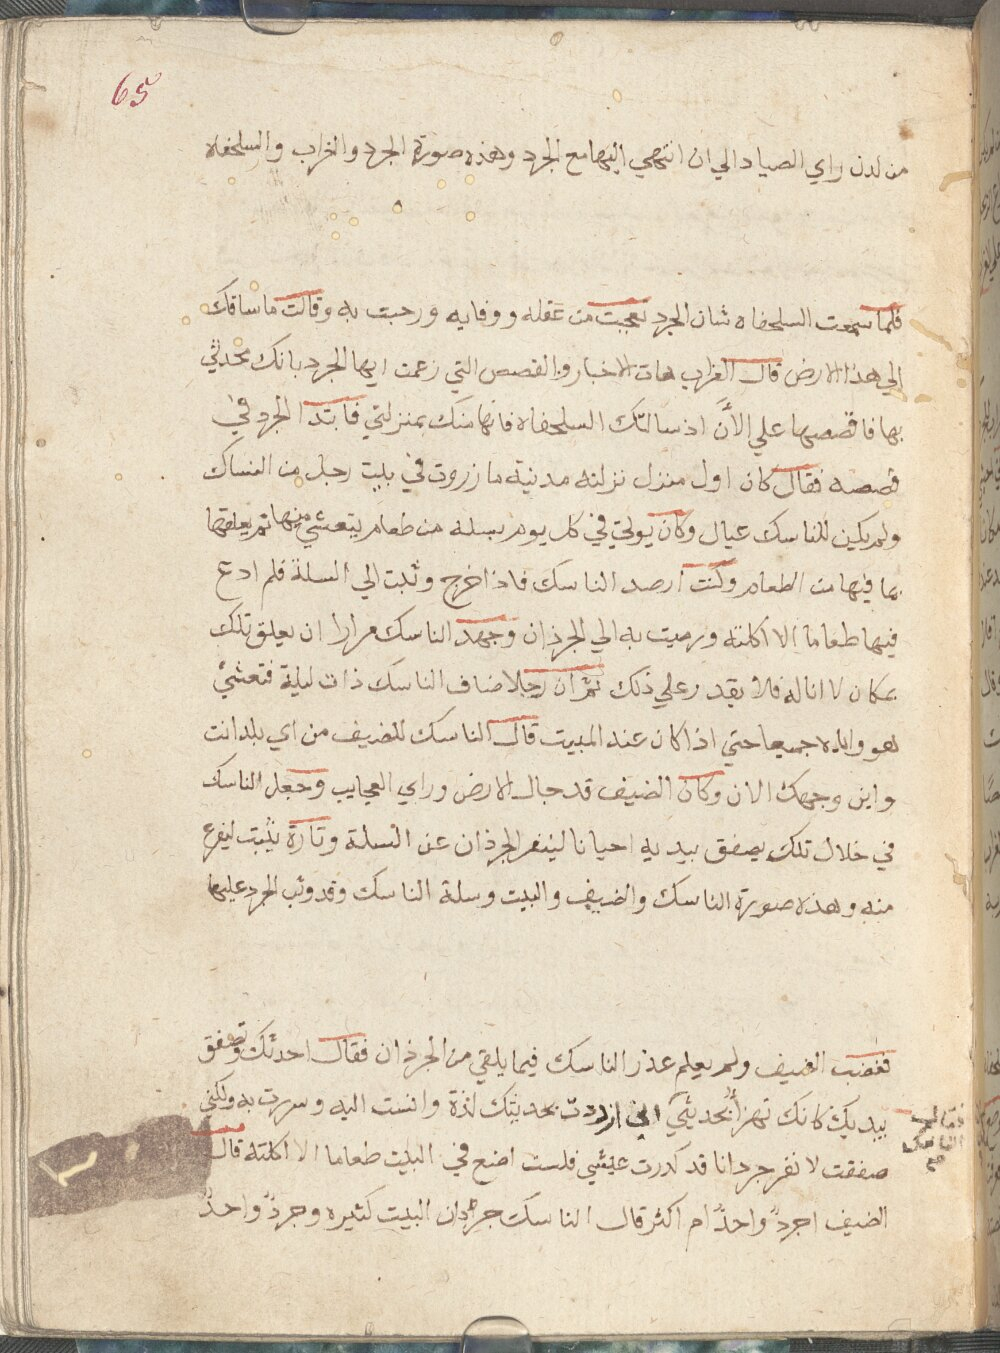 65
من لدن راي الصياد الي ان انتهي اليها مع الجرد وهذه صورة الجرد والغراب والسلحفاه
فلما سمعت السلحفاه شان الجرد تعجبت من عقله ووفايه ورحبت به وقالت ما ساقك
الي هذا الارض قال الغراب هات الاخبار والقصص التي زعمت ايها الجرد بانك محدثي
بها فاقصصها علي الأن اذ سالتك السلحفاه فانها منك بمنزلتي فابتدا الجرد في
قصصه فقال كان اول منزل نزلته مدنية ما زروت في بيت رجل من النساك
ولم يكن للناسك عيال وكان يوتي في كل يوم بسله من طعام يتعشي منها ثم يعلقها
بما فيها من الطعام وكنت ارصد الناسك فاذا خرج وثبت الي السلة فلم ادع
فيها طعاما الا اكلته ورميت به الي الجرذان وجهد الناسك مرارا ان يعلق تلك
بمكان لا اناله فلا يقدر علي ذلك ثم ان رجلا ضاف الناسك ذات ليلة فتعشي
هو واياه جميعا حتي اذا كان عند المبيت قال الناسك للضيف من اي بلد انت
واين وجهك الان وكان الضيف قد جال الارض وراي العجايب وجعل الناسك
في خلال تلك يصفق بيديه احيانا لينفر الجرذان عن السلة وتارة يثبت ليفرع
منه وهذه صورة الناسك والضيف والبيت وسلة الناسك وقد وثب الجرد عليها
فغضب الضيف ولم يعلم عذر الناسك فيما يلقي من الجرذان فقال احدثك وتصفق
بيديك كانك تهزأ بحديثي اني ازددت بحديثك لذة وانست اليه وسررت به ولكني
فقال الناسك
صفقت لا نفر جردانا قد كدرت عيشي فلست اضع في البيت طعاما الا اكلته قال
الضيف اجرد واحدٌ ام اكثر قال الناسك جرذان البيت كثيره وجردٌ واحدٌ